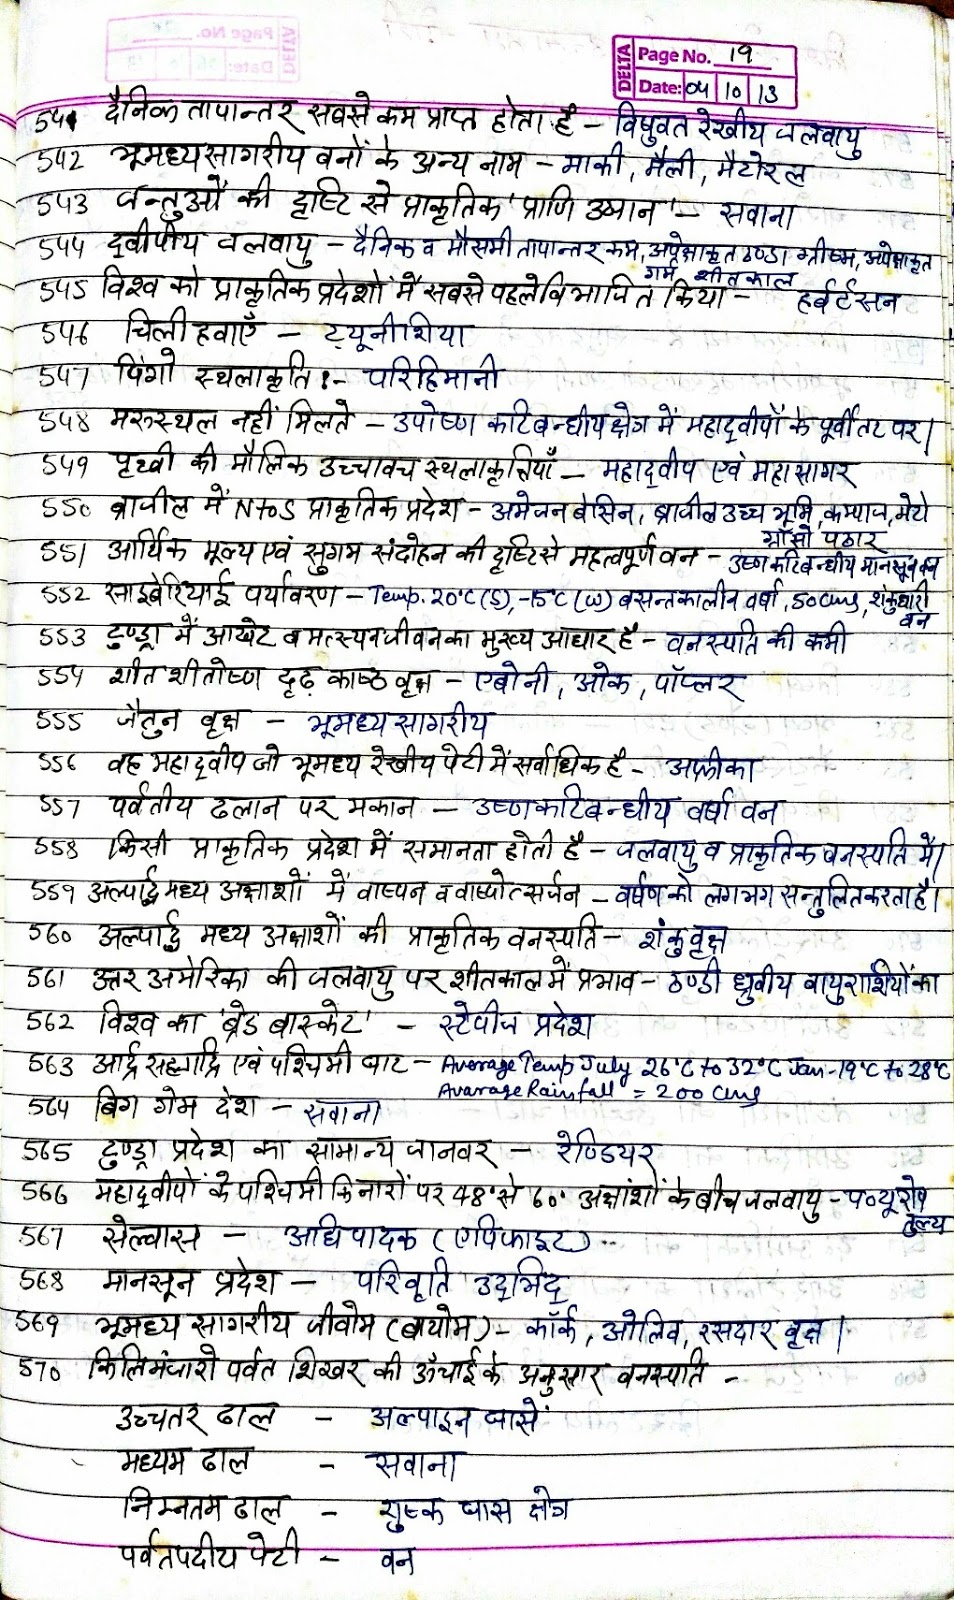 DELTA
Page No. 19
Date: 04 10 13
541 दैनिक तापान्तर सबसे कम प्राप्त होता है – विषुवत रेखीय जलवायु
542 भूमध्यसागरीय वनों के अन्य नाम – माकी, मैली, मैटोरल
543 जन्तुओं की दृष्टि से प्राकृतिक 'प्राणि उद्यान' – सवाना
544 द्वीपीय जलवायु – दैनिक व मौसमी तापान्तर कम, अपेक्षाकृत ठण्डा ग्रीष्म, अपेक्षाकृत
गर्म शीतकाल
545 विश्व को प्राकृतिक प्रदेशों में सबसे पहले विभाजित किया – हर्बर्टसन
546 चिली हवाएँ – ट्यूनीशिया
547 पिंगो स्थलाकृति :- परिहिमानी
548 मरुस्थल नहीं मिलते – उपोष्ण कटिबन्धीय क्षेत्र में महाद्वीपों के पूर्वी तट पर।
549 पृथ्वी की मौलिक उच्चावच स्थलाकृतियाँ – महाद्वीप एवं महासागर
550 ब्राजील में N to S प्राकृतिक प्रदेश – अमेजन बेसिन, ब्राजील उच्च भूमि, कम्पाज, मेटो
ग्रोसो पठार
551 आर्थिक मूल्य एवं सुगम संदोहन की दृष्टि से महत्वपूर्ण वन – उष्णकटिबन्धीय मानसून वन
552 साइबेरियाई पर्यावरण – Temp. 20°C (S), -15°C (W) बसन्तकालीन वर्षा, 50 cms, शंकुधारी
वन
553 टुण्ड्रा में आखेट व मत्स्यन जीवन का मुख्य आधार है – वनस्पति की कमी
554 शीत शीतोष्ण दृढ़ काष्ठ वृक्ष – एबोनी, ओक, पॉप्लर
555 जैतुन वृक्ष – भूमध्यसागरीय
556 वह महाद्वीप जो भूमध्य रेखीय पेटी में सर्वाधिक है – अफ्रीका
557 पर्वतीय ढलान पर मकान – उष्णकटिबन्धीय वर्षा वन
558 किसी प्राकृतिक प्रदेश में समानता होती है – जलवायु व प्राकृतिक वनस्पति में।
559 अल्पार्द्र मध्य अक्षाशों में वाष्पन व वाष्पोत्सर्जन – वर्षण को लगभग सन्तुलित करता है।
560 अल्पार्द्र मध्य अक्षाशों की प्राकृतिक वनस्पति – शंकुवृक्ष
561 उत्तर अमेरिका की जलवायु पर शीतकाल में प्रभाव – ठण्डी ध्रुवीय वायुराशियों का
562 विश्व का 'ब्रेड बास्केट' – स्टेपीज प्रदेश
563 आर्द्र सह्याद्रि एवं पश्चिमी घाट – Average Temp July 26°C to 32°C Jan – 19°C to 28°C
Avarage Rainfall = 200 cms
564 बिग गेम देश – सवाना
565 टुण्ड्रा प्रदेश का सामान्य जानवर – रेण्डियर
566 महाद्वीपों के पश्चिमी किनारों पर 48° से 60° अक्षांशों के बीच जलवायु – प० यूरोप
तुल्य
567 सेल्वास – अधिपादक (एपिफाइट)
568 मानसून प्रदेश – परिवृति उद्भिद्
569 भूमध्य सागरीय जीवोम (बायोम) – कॉर्क, ओलिव, रसदार वृक्ष।
570 किलिमंजारो पर्वत शिखर की ऊँचाई के अनुसार वनस्पति –
उच्चतर ढाल – अल्पाइन घासें
मध्यम ढाल – सवाना
निम्नतम ढाल – शुष्क घास क्षेत्र
पर्वतपदीय पेटी – वन